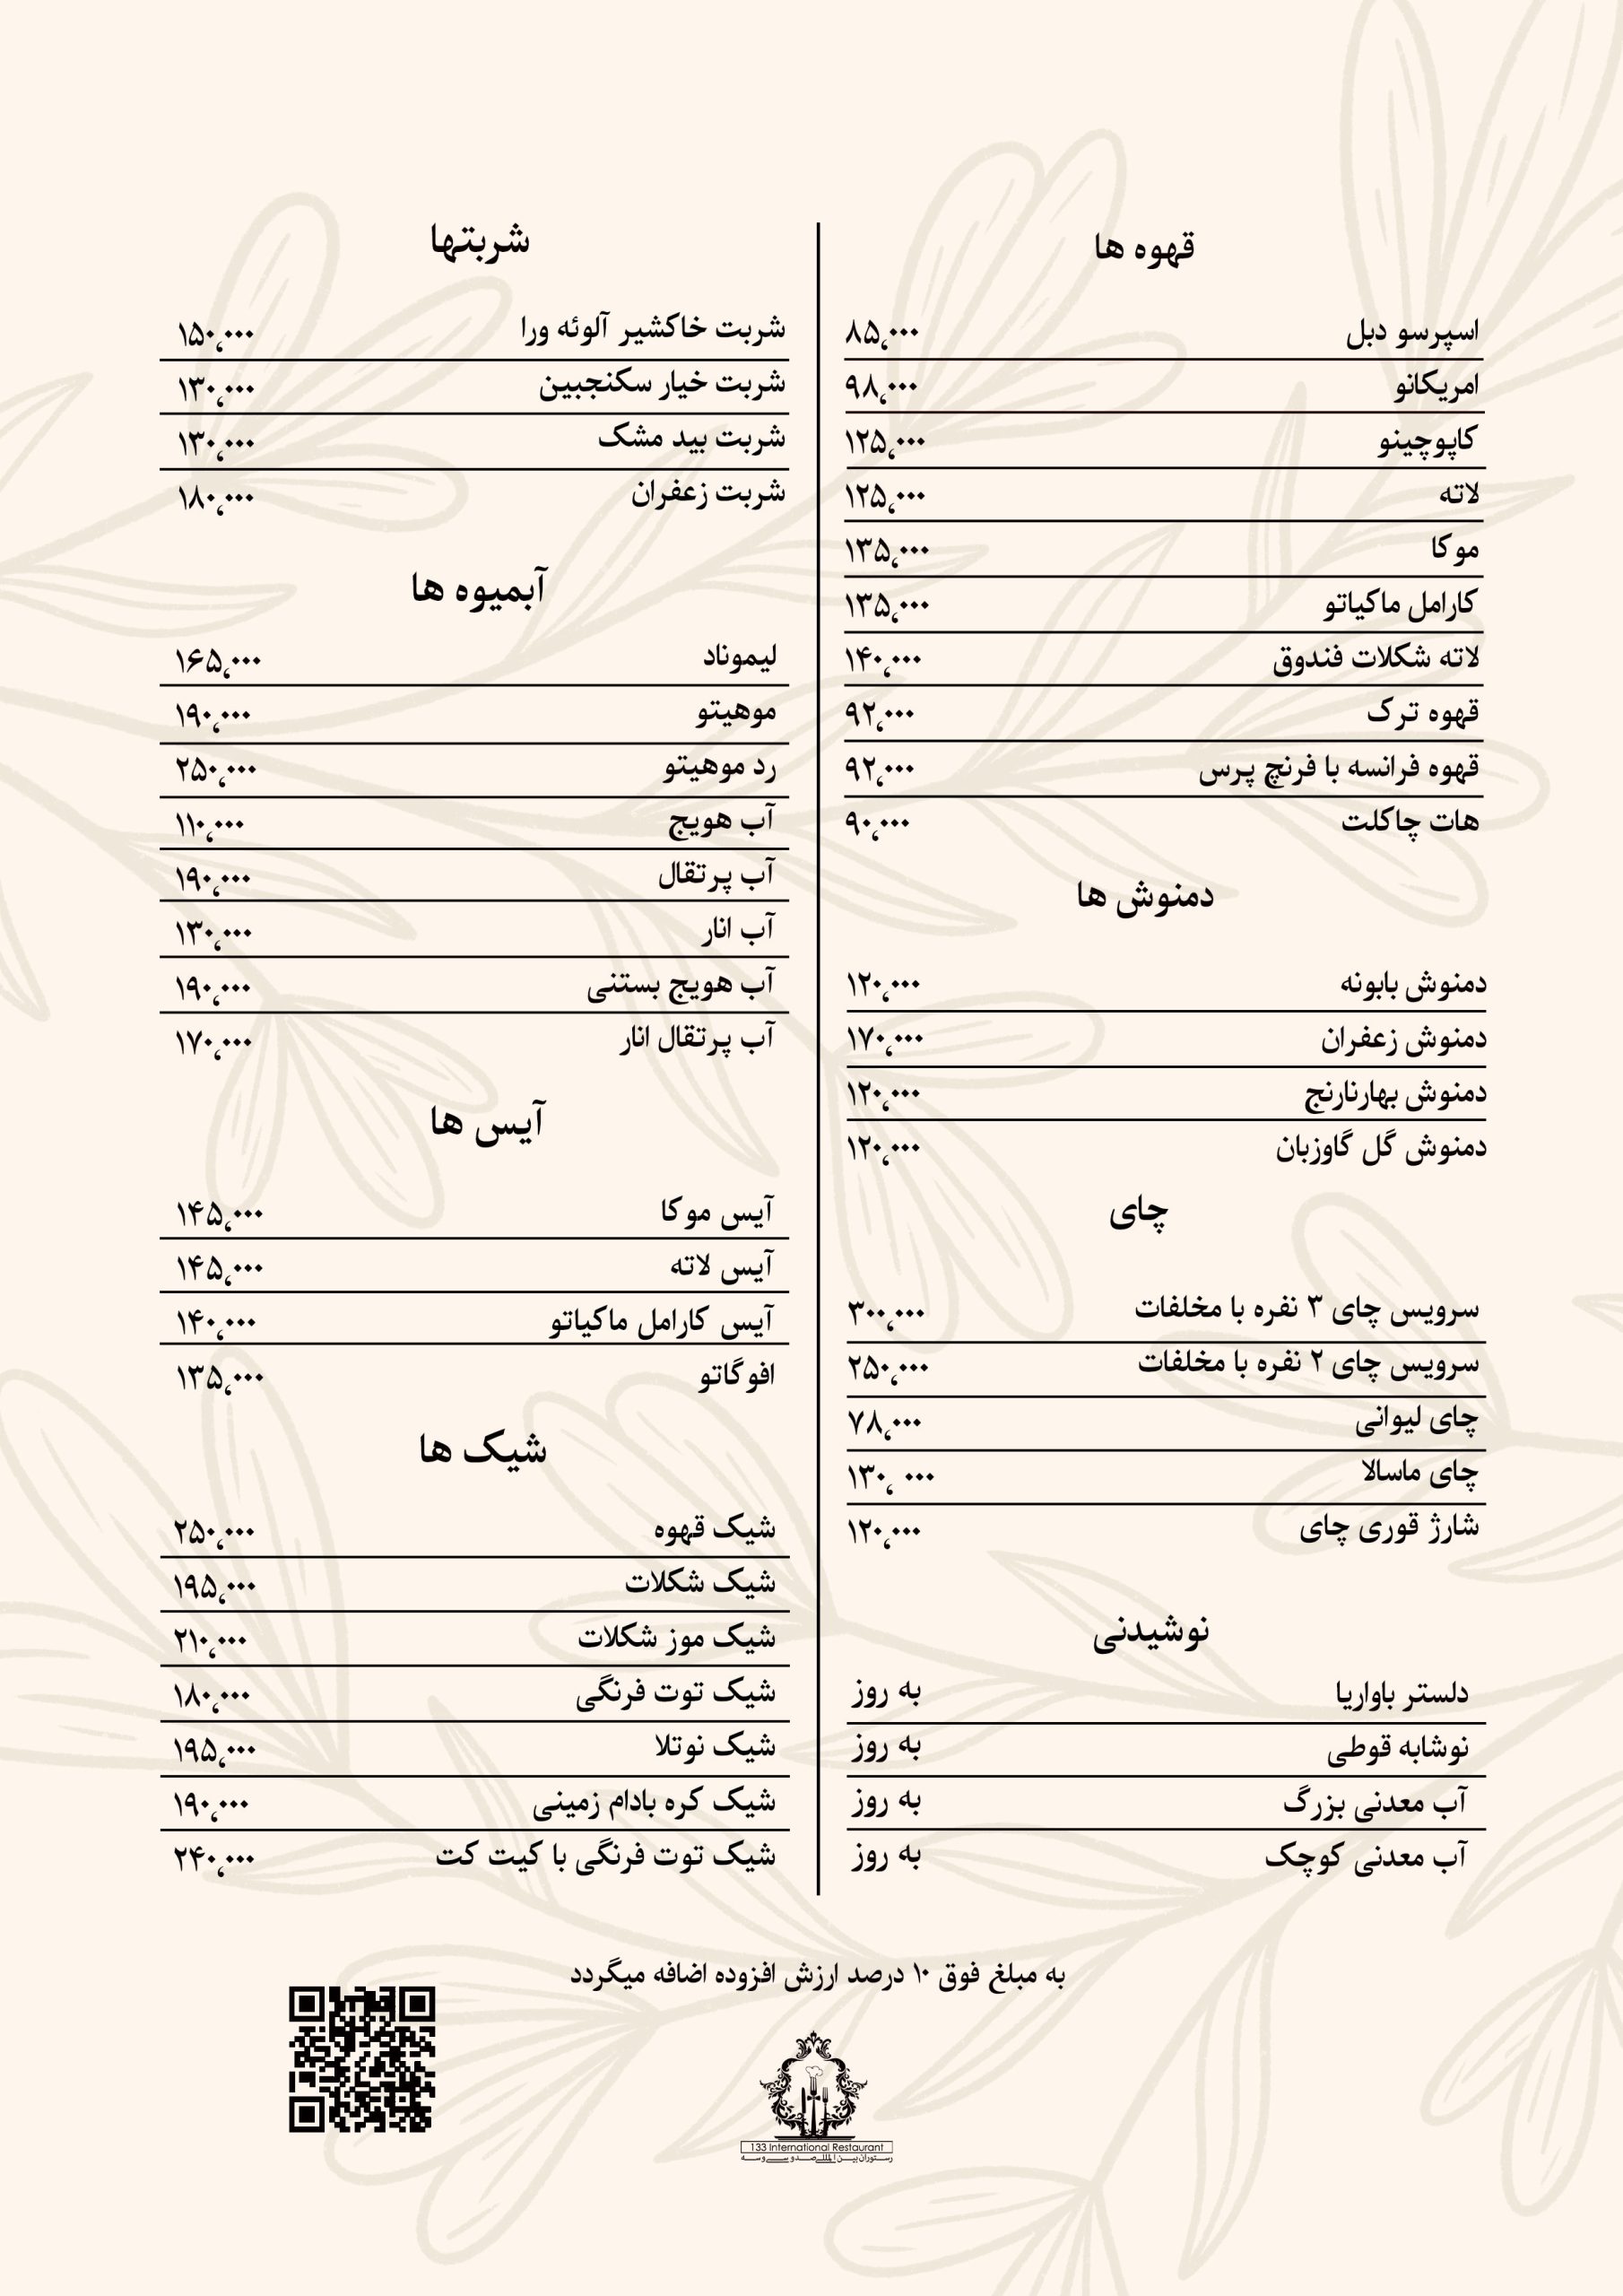 قهوه ها
اسپرسو دبل ۸۵,۰۰۰
امریکانو ۹۸,۰۰۰
کاپوچینو ۱۲۵,۰۰۰
لاته ۱۲۵,۰۰۰
موکا ۱۳۵,۰۰۰
کارامل ماکیاتو ۱۳۵,۰۰۰
لاته شکلات فندوق ۱۴۰,۰۰۰
قهوه ترک ۹۲,۰۰۰
قهوه فرانسه با فرنچ پرس ۹۲,۰۰۰
هات چاکلت ۹۰,۰۰۰
دمنوش ها
دمنوش بابونه ۱۲۰,۰۰۰
دمنوش زعفران ۱۷۰,۰۰۰
دمنوش بهارنارنج ۱۲۰,۰۰۰
دمنوش گل گاوزبان ۱۲۰,۰۰۰
چای
سرویس چای ۳ نفره با مخلفات ۳۰۰,۰۰۰
سرویس چای ۲ نفره با مخلفات ۲۵۰,۰۰۰
چای لیوانی ۷۸,۰۰۰
چای ماسالا ۱۳۰, ۰۰۰
شارژ قوری چای ۱۲۰,۰۰۰
نوشیدنی
دلستر باواریا به روز
نوشابه قوطی به روز
آب معدنی بزرگ به روز
آب معدنی کوچک به روز
شربتها
شربت خاکشیر آلوئه ورا ۱۵۰,۰۰۰
شربت خیار سکنجبین ۱۳۰,۰۰۰
شربت بید مشک ۱۳۰,۰۰۰
شربت زعفران ۱۸۰,۰۰۰
آبمیوه ها
لیموناد ۱۶۵,۰۰۰
موهیتو ۱۹۰,۰۰۰
رد موهیتو ۲۵۰,۰۰۰
آب هویج ۱۱۰,۰۰۰
آب پرتقال ۱۹۰,۰۰۰
آب انار ۱۳۰,۰۰۰
آب هویج بستنی ۱۹۰,۰۰۰
آب پرتقال انار ۱۷۰,۰۰۰
آیس ها
آیس موکا ۱۴۵,۰۰۰
آیس لاته ۱۴۵,۰۰۰
آیس کارامل ماکیاتو ۱۴۰,۰۰۰
افوگاتو ۱۳۵,۰۰۰
شیک ها
شیک قهوه ۲۵۰,۰۰۰
شیک شکلات ۱۹۵,۰۰۰
شیک موز شکلات ۲۱۰,۰۰۰
شیک توت فرنگی ۱۸۰,۰۰۰
شیک نوتلا ۱۹۵,۰۰۰
شیک کره بادام زمینی ۱۹۰,۰۰۰
شیک توت فرنگی با کیت کت ۲۴۰,۰۰۰
به مبلغ فوق ۱۰ درصد ارزش افزوده اضافه میگردد
133 International Restaurant
رستوران بین المللی صد و سی و سه